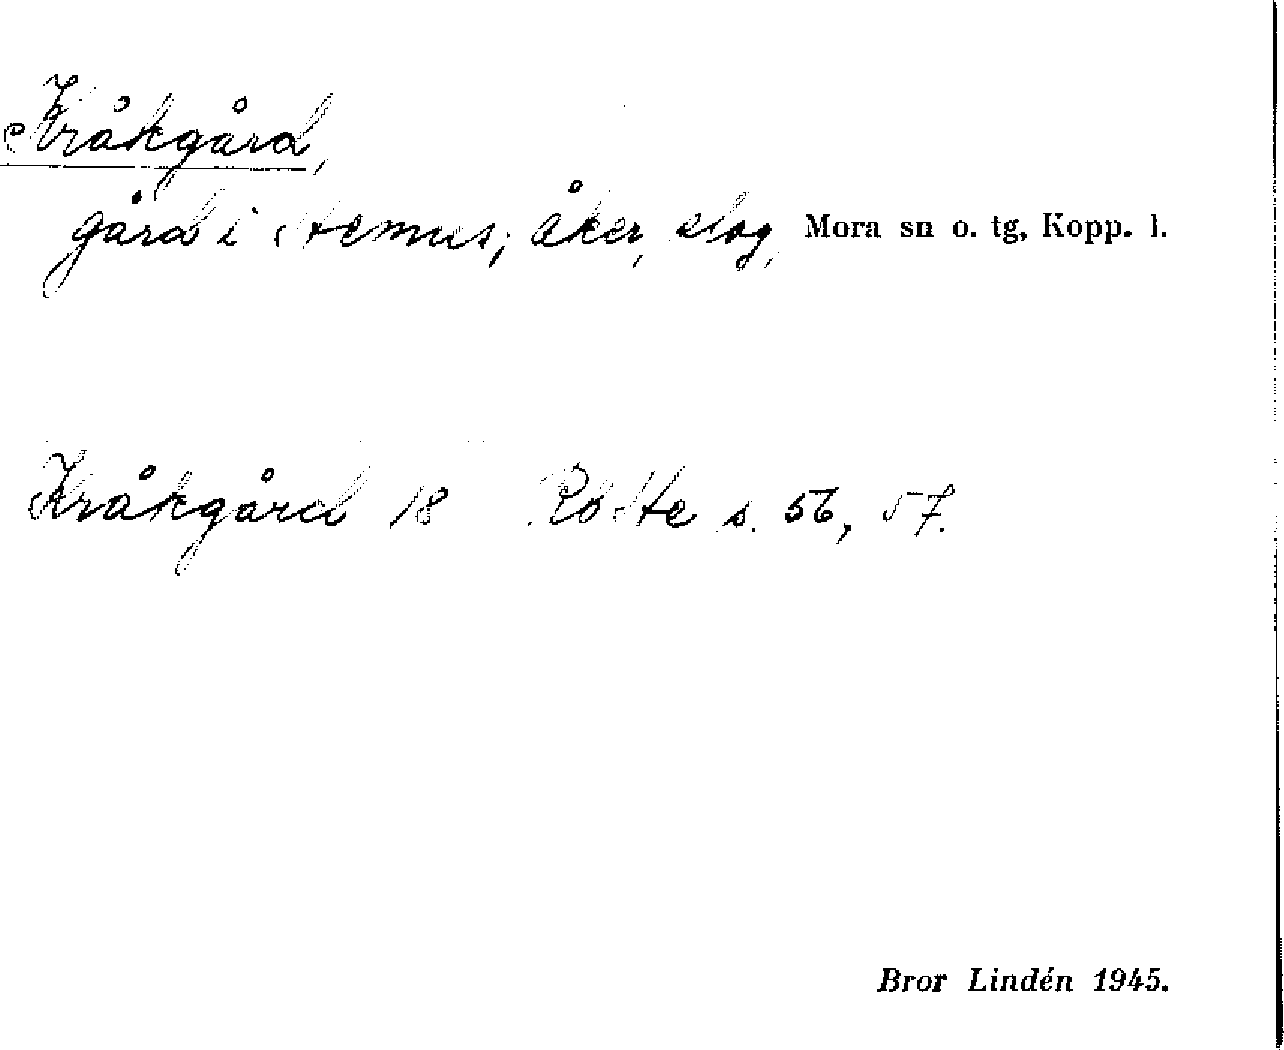 Kråkgård,
gård i Hemus; åker, slog, Mora sn o. tg, Kopp. l.
Kråkgård 18 Rotte s. 56, 57.
Bror Lindén 1945.